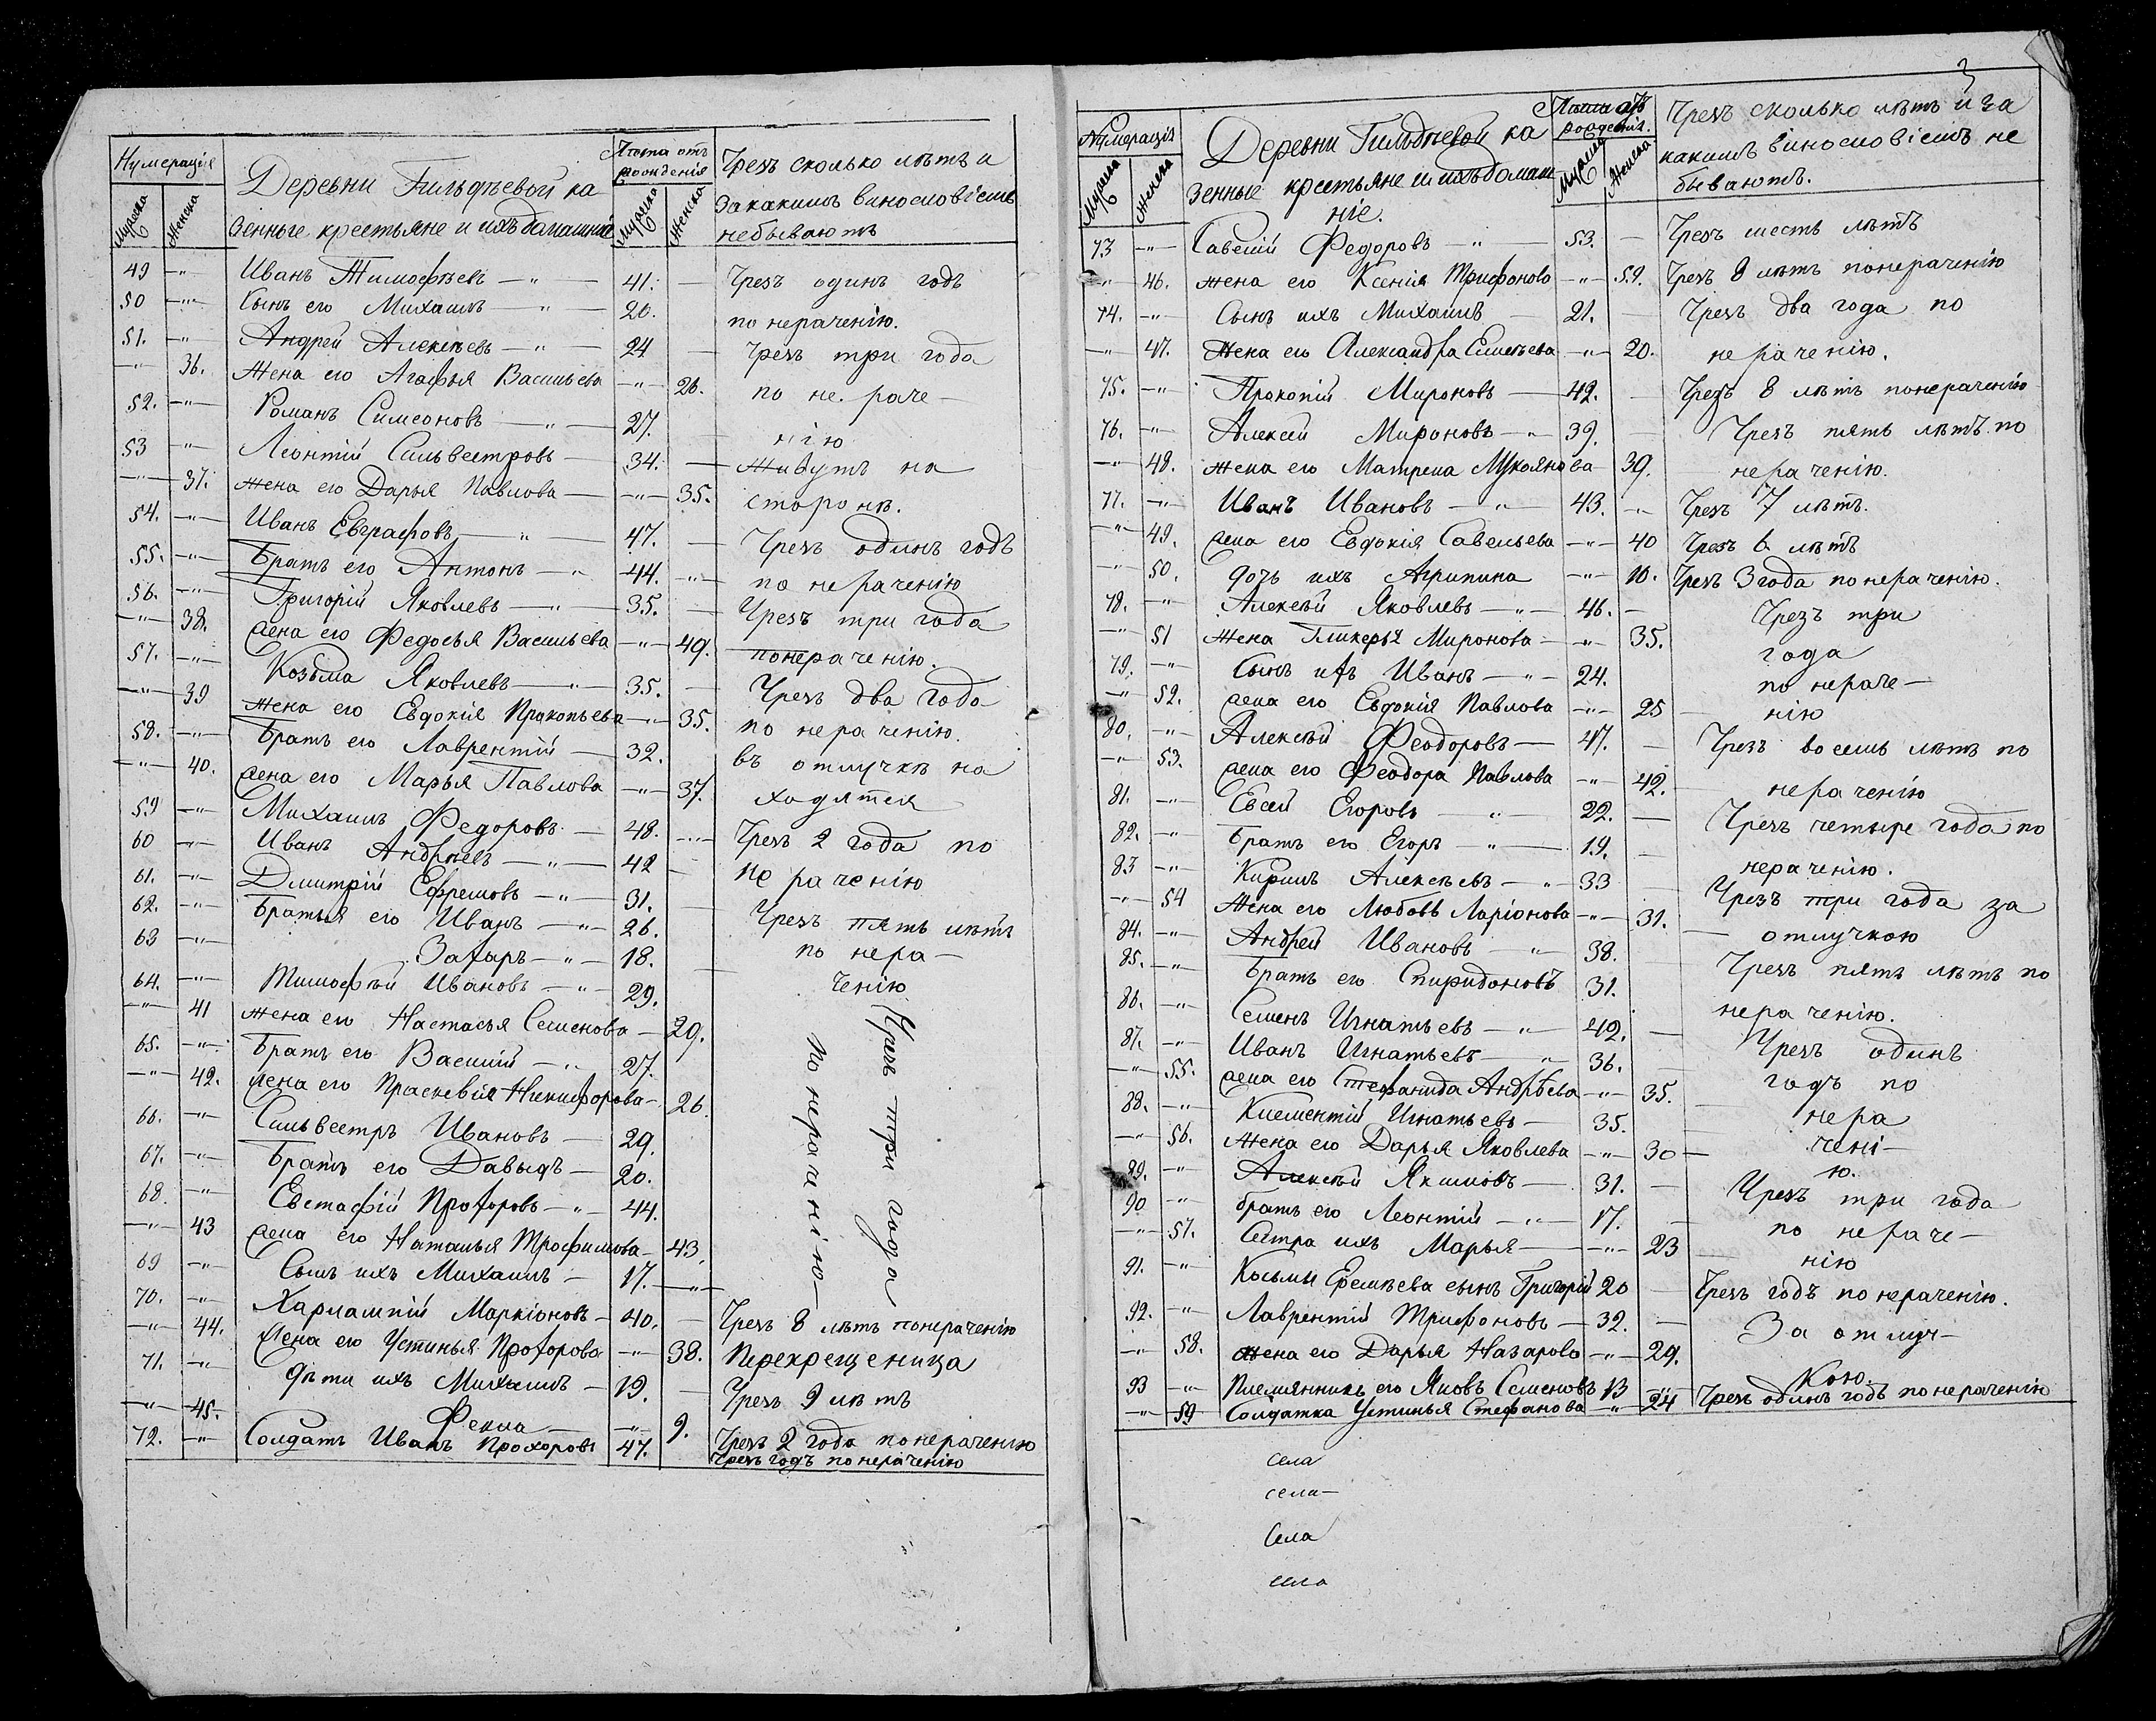 Нумерація
Мужеска
Женска
Деревни Гильдѣевой ка
зенные крестьяне и ихъ домашніе
Лѣта отъ
рожденія
Мужска
Женска
Чрезъ сколько лѣтъ и
за какимъ винословіемъ
небываютъ
49 —"— Иванъ Тимофѣевъ —"— 41. — Чрезъ одинъ годъ
50 —"— Сынъ его Михаилъ —"— 20. по нераченію.
51. —"— Андрей Алексѣевъ —"— 24 — Чрезъ три года
—"— 36. Жена его Агафья Васильева —"— 26. по не раче—
52. —"— Романъ Симеоновъ —"— 27. нію
53 —"— Леонтій Сильвестровъ — 34. — живутъ на
—"— 37. жена его Дарья Павлова — —"— 35. сторонѣ.
54. —"— Иванъ Евграфовъ —"— 47. — Чрезъ одинъ годъ
55. —"— Братъ его Антонъ —"— 44. —"— по нераченію
56. —"— Григорій Яковлевъ —"— 35. — Чрезъ три года
—"— 38. жена его Федосья Васильева —"— 49. понераченію.
57. —"— Козьма Яковлевъ —"— 35. — Чрезъ два года
—"— 39 жена его Евдокія Прокопьева —"— 35. по нераченію.
58. —"— Братъ его Лаврентій — 32. въ отлучкѣ на
—"— 40. жена его Марья Павлова —"— 37. ходятся
59 —"— Михаилъ Федоровъ — 48. —"— Чрезъ 2 года по
60 —"— Иванъ Андрѣевъ —"— 42 — не раченію
61. —"— Дмитрій Ефремовъ —"— 31. —
62. —"— Братья его Иванъ —"— 26. Чрезъ пять лѣтъ
63 —"— Захаръ —"— 18. по нера—
64. —"— Тимофѣй Ивановъ —"— 29. ченію
—"— 41 жена его Настасья Семенова — 29.
65. —"— Братъ его Василій —"— 27.
—"— 42. жена его Прасковія Никифорова — 26.
66. —"— Сильвестръ Ивановъ — 29.
67. —"— Братъ его Давыдъ — 20.
68. —"— Евстафій Прохоровъ —"— 44.
—"— 43 жена его Наталья Трофимова — 43.
69 —"— Сынъ ихъ Михаилъ — 17. —"—
Чрезъ три года
по нераченію—
70. —"— Харлампій Маркіоновъ — 40. — Чрезъ 8 лѣтъ понераченію
—"— 44. Жена его Устинья Прохорова —"— 38. Перекрещеница
71. —"— Дѣти ихъ Михаилъ — 19. — Чрезъ 9 лѣтъ
—"— 45. Фекла — —"— 9. Чрезъ 2 года понераченію
72. —"— Солдатъ Иванъ Прохоровъ 47. Чрезъ годъ по нераченію
3
Нумерація
Мужеска
Женска
Деревни Гильдѣевой ка
зенные крестьяне и ихъ домаш
ніе.
Лѣта отъ
рожденія.
Мужска
Женска
Чрезъ сколько лѣтъ и за
какимъ вінословіемъ не
бываютъ.
73 —"— Савелій Федоровъ —"— 53. — Чрезъ шесть лѣтъ
—"— 46. жена его Ксенія Трифонова —"— 59. Чрезъ 8 лѣтъ понераченію
74. —"— Сынъ ихъ Михаилъ — 21. — Чрезъ два года по
—"— 47. Жена его Александра Елисѣева —"— 20. нераченію.
75. —"— Прокопій Мироновъ — 42. — Чрезъ 8 лѣтъ понераченію
76. —"— Алексѣй Мироновъ —"— 39. — Чрезъ пять лѣтъ по
—"— 48. жена его Матрена Лукоянова — 39. нераченію.
77. —"— Иванъ Ивановъ —"— 43. —"— Чрезъ 7 лѣтъ.
—"— 49. жена его Евдокія Савельева —"— 40 Чрезъ 6 лѣтъ
—"— 50. дочь ихъ Агрипина —"— 10. Чрезъ 3 года понераченію.
78. —"— Алексѣй Яковлевъ —"— 46. — Чрезъ три
—"— 51 жена Гликерья Миронова —"— 35. года
79. —"— Сынъ ихъ Иванъ —"— 24. по нераче—
—"— 52. жена его Евдокія Павлова —"— 25 нію
80. —"— Алексѣй Феодоровъ — 47. — Чрезъ восемь лѣтъ по
—"— 53. жена его Феодора Павлова —"— 42. нераченію
81. —"— Евсей Егоровъ —"— 22. — Чрезъ четыре года по
82. —"— Братъ его Егоръ —"— 19. — нераченію.
83 —"— Кирилъ Алексѣевъ —"— 33 — Чрезъ три года за
—"— 54 Жена его Любовь Ларіонова —"— 31. — отлучкою
84. —"— Андрей Ивановъ —"— 38. — Чрезъ пять лѣтъ по
85. —"— Братъ его Спиридоновъ 31. нераченію.
86. —"— Семенъ Игнатьевъ —"— 42. — Чрезъ одинъ
87. —"— Иванъ Игнатьевъ —"— 36. — годъ по
—"— 55. жена его Стефанида Андрѣева —"— 35. нера
88. —"— Клементій Игнатьевъ — 35. чені—
—"— 56. Жена его Дарья Яковлева —"— 30 — ю.
89. —"— Алексѣй Якимовъ — 31. — Чрезъ три года
90 —"— братъ его Леонтій —"— 17. — по нераче—
—"— 57. Сестра ихъ Марья — —"— 23 нію
91. —"— Косьмы Еремѣева сынъ Григорій 20 — Чрезъ годъ по нераченію.
92. —"— Лаврентій Трифоновъ — 32. — За отлуч—
—"— 58. жена его Дарья Назарова —"— 29. кою.
93 —"— Племянникъ его Яковъ Семеновъ 13 —"—
—"— 59 Солдатка Устинья Стефанова —"— 24 Чрезъ одинъ годъ по нераченію
села
села—
Села
села